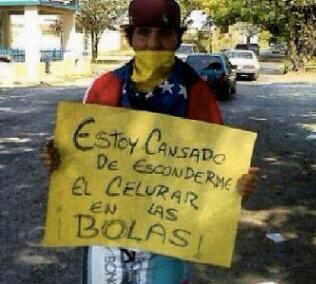 ESTOY CANSADO
DE ESCONDERME
EL CELURAR
EN LAS
¡BOLAS!